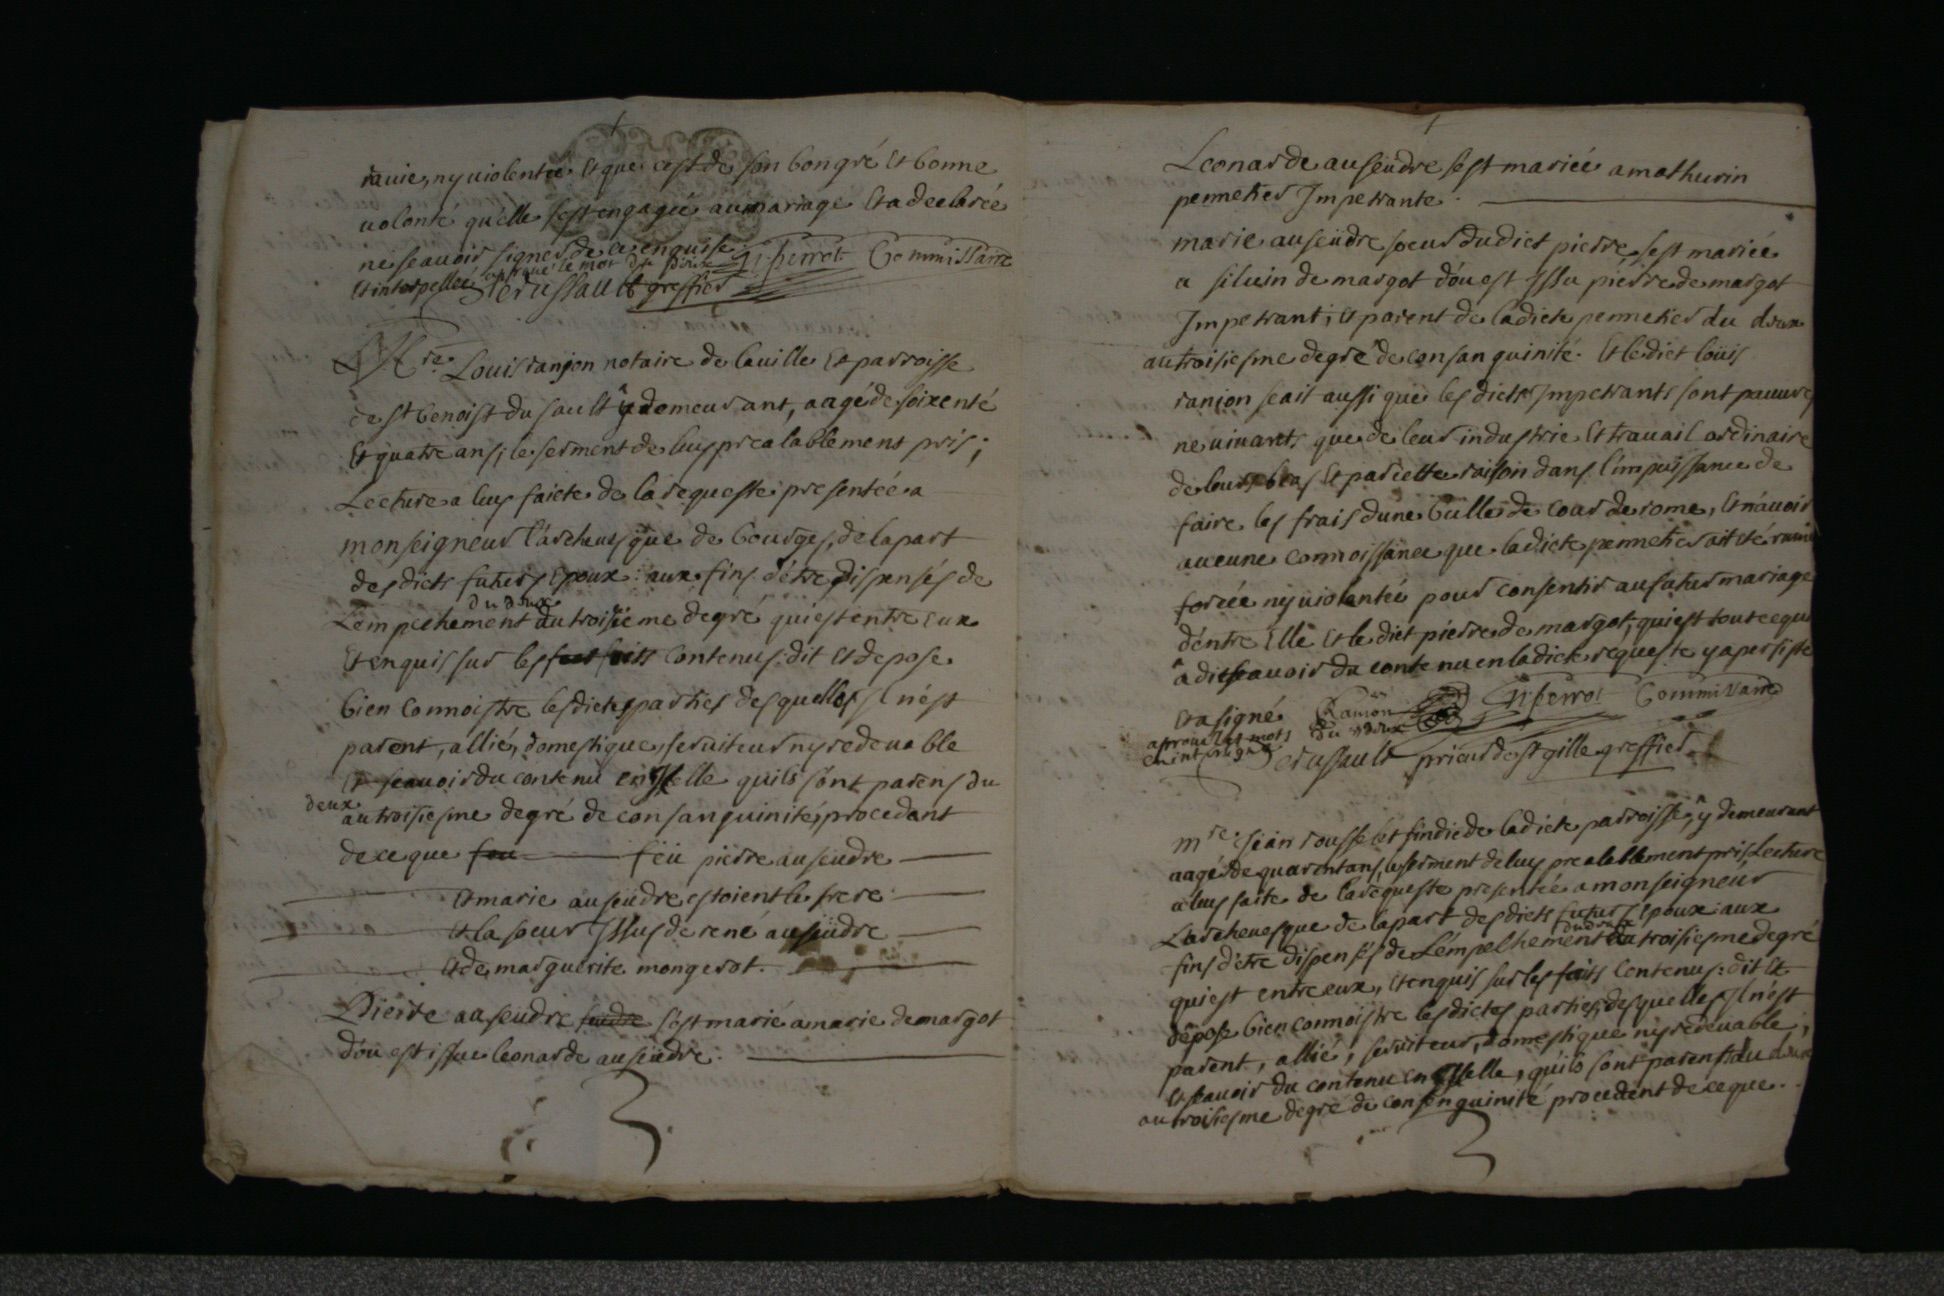 ravie, ny violentée Et que c'est de son bon gré Et bonne
volonté quelle s'est engagée au mariage Et a declarée
ne scavoir signer de ce enquise. perrot Commissaire
Et interpellée aprouvé le mot du deux
greffier
Mre. Louis ranjon notaire de la ville Et parroisse
de st benoist du sault y demeurant, aagé de soixente
Et quatre ans, le serment de luy prealablement pris;
Lecture a luy faicte de la requeste presentée a
monseigneur l'archevesque de bourges, de la part
des dicts futurs Epoux: aux fins d'être dispensés de
du deux
L'empechement au troisiéme degré qui est entre Eux
Et enquis sur les faits contenus: dit Et depose
bien connoistre les dictes parties des quelles Il n'est
parent, allié, domestique, serviteur ny redevable
Et scavoir du contenu en Icelle quils sont parens du
deux
au troisiesme degré de consanguinité, procedant
de ce que feu feü pierre ausendre
Et marie ausendre estoient le frere
Et la soeur Issus de rené ausendre
Et de marguerite mongerot.
Pierre ausendre s'est marié a marie demargot
d'ou est issue leonarde ausendre.
Leonarde ausendre s'est mariée a mathurin
pennetier Impetrante.
marie ausendre soeur dudict pierre, s'est mariée
a silvin de margot d'ou est Issu pierre de margot
Impetrant; Et parent de ladicte pennetier du deux
au troisiesme degré de consanguinité. Et ledict loüis
ranjon scait aussi que les dicts Impetrants sont pauvres
ne vivants que de leur industrie Et travail ordinaire
de leurs bras Et par cette raison dans l'impuissance de
faire les frais dune bulle de cour de rome, Et n'avoir
aucune connoissance que ladicte pennetier ait été ravie
forcée ny violentée pour consentir au futur mariage
d'entre Elle Et le dict pierre de margot, qui est tout ce qu
a dit scavoir du contenu en ladicte requeste y a persisté
Et a signé Ranjon perrot Commissaire
aprouvé les mots du deux
en interligne
prieur de st gille greffier
mre. jean rousselet sindic de ladicte parroisse, y demeurant
aagé de quarent ans, le serment de luy prealablement pris, Lecture
a luy faite de la requeste presentée a monseigneur
L'archevesque de la part des dicts futurs Epoux aux
du deux
fins d'être dispensés de L'empechement au troisiesme degré
qui est entre eux, Et enquis sur les faits contenus: dit Et
dépose bien connoistre les dictes parties, desquelles Il n'est
parent, allié, serviteur, domestique ny redevable;
Et scavoir du contenu en Icelle, quils sont parens du deux
au troisiesme degré de consenguinité procedent de ce que.